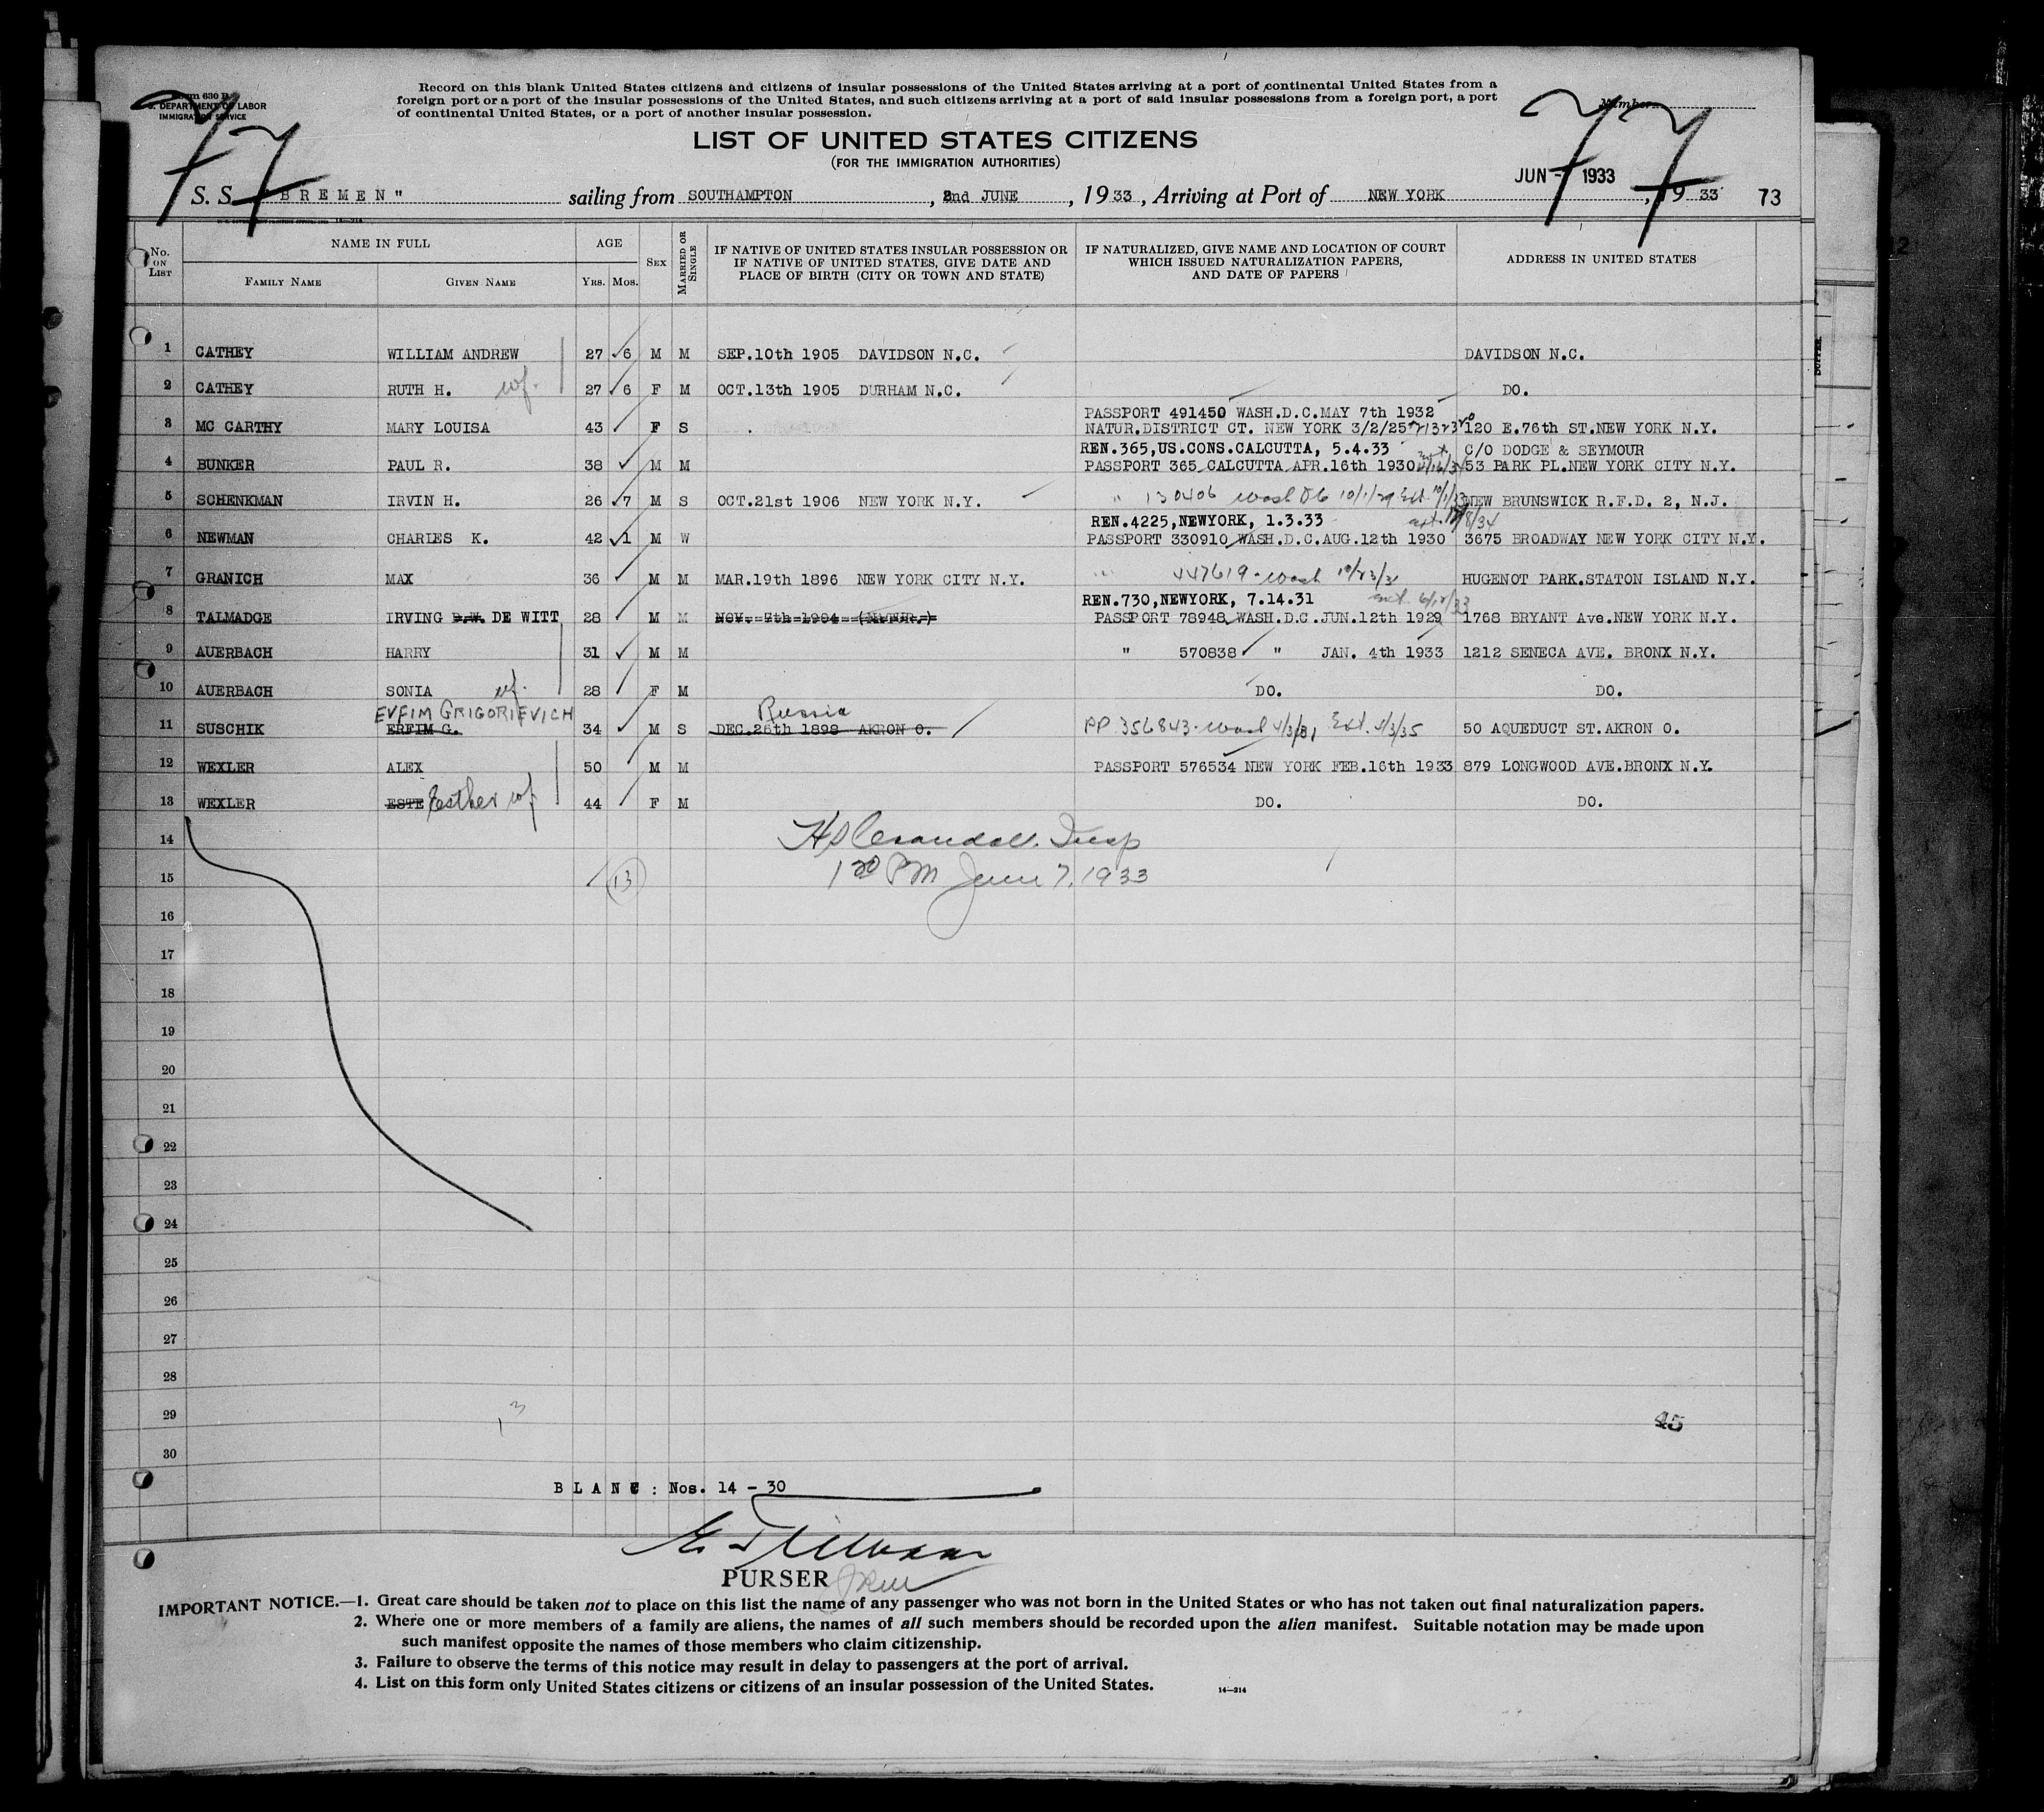 Form 630 B
U. S. DEPARTMENT OF LABOR
IMMIGRATION SERVICE
Record on this blank United States citizens and citizens of insular possessions of the United States arriving at a port of continental United States from a
foreign port or a port of the insular possessions of the United States, and such citizens arriving at a port of said insular possessions from a foreign port, a port
of continental United States, or a port of another insular possession.
Number
77
77
LIST OF UNITED STATES CITIZENS
(FOR THE IMMIGRATION AUTHORITIES)
JUN - 7 1933
S. S. "BREMEN" sailing from SOUTHAMPTON, 2nd JUNE, 1933, Arriving at Port of NEW YORK, 1933 73
No. ON LIST
NAME IN FULL
FAMILY NAME GIVEN NAME
AGE
YRS. MOS.
SEX
MARRIED OR SINGLE
IF NATIVE OF UNITED STATES INSULAR POSSESSION OR
IF NATIVE OF UNITED STATES, GIVE DATE AND
PLACE OF BIRTH (CITY OR TOWN AND STATE)
IF NATURALIZED, GIVE NAME AND LOCATION OF COURT
WHICH ISSUED NATURALIZATION PAPERS,
AND DATE OF PAPERS
ADDRESS IN UNITED STATES
1 CATHEY WILLIAM ANDREW 27 6 M M SEP.10th 1905 DAVIDSON N.C. DAVIDSON N.C.
2 CATHEY RUTH H. wf. 27 6 F M OCT.13th 1905 DURHAM N.C. DO.
PASSPORT 491450 WASH.D.C.MAY 7th 1932
3 MC CARTHY MARY LOUISA 43 F S NATUR.DISTRICT CT. NEW YORK 3/2/25 120 E.76th ST.NEW YORK N.Y.
REN.365,US.CONS.CALCUTTA, 5.4.33 C/O DODGE & SEYMOUR
4 BUNKER PAUL R. 38 M M PASSPORT 365 CALCUTTA APR.16th 1930 53 PARK PL.NEW YORK CITY N.Y.
5 SCHENKMAN IRVIN H. 26 7 M S OCT.21st 1906 NEW YORK N.Y. " 130406 Wash DC 10/1/29 Ext. 10/1/33 NEW BRUNSWICK R.F.D. 2, N.J.
REN.4225,NEWYORK, 1.3.33
6 NEWMAN CHARLES K. 42 1 M W PASSPORT 330910 WASH.D.C.AUG.12th 1930 3675 BROADWAY NEW YORK CITY N.Y.
7 GRANICH MAX 36 M M MAR.19th 1896 NEW YORK CITY N.Y. " 447619 - Wash 10/23/31 HUGENOT PARK.STATON ISLAND N.Y.
REN.730,NEWYORK, 7.14.31 ext. 6/12/33
8 TALMADGE IRVING D.W. DE WITT 28 M M NOV. 7th 1904 (NATUR.) PASSPORT 78948 WASH.D.C.JUN.12th 1929 1768 BRYANT Ave.NEW YORK N.Y.
9 AUERBACH HARRY 31 M M " 570838 " JAN. 4th 1933 1212 SENECA AVE. BRONX N.Y.
10 AUERBACH SONIA wf. 28 F M DO. DO.
EVFIM GRIGORIEVICH Russia
11 SUSCHIK ERFIM G. 34 M S DEC.26th 1898 AKRON O. PP 356843 - Wash 4/3/31, Ext. 4/3/35 50 AQUEDUCT ST.AKRON O.
12 WEXLER ALEX 50 M M PASSPORT 576534 NEW YORK FEB.16th 1933 879 LONGWOOD AVE.BRONX N.Y.
13 WEXLER ESTE Esther wf 44 F M DO. DO.
14 H S Crandall. Insp
15 13 1 20 PM June 7, 1933
16
17
18
19
20
21
22
23
24
25
26
27
28
29 13 45
30
BLANC: Nos. 14 - 30
PURSER
IMPORTANT NOTICE.—1. Great care should be taken not to place on this list the name of any passenger who was not born in the United States or who has not taken out final naturalization papers.
2. Where one or more members of a family are aliens, the names of all such members should be recorded upon the alien manifest. Suitable notation may be made upon
such manifest opposite the names of those members who claim citizenship.
3. Failure to observe the terms of this notice may result in delay to passengers at the port of arrival.
4. List on this form only United States citizens or citizens of an insular possession of the United States.
14—214